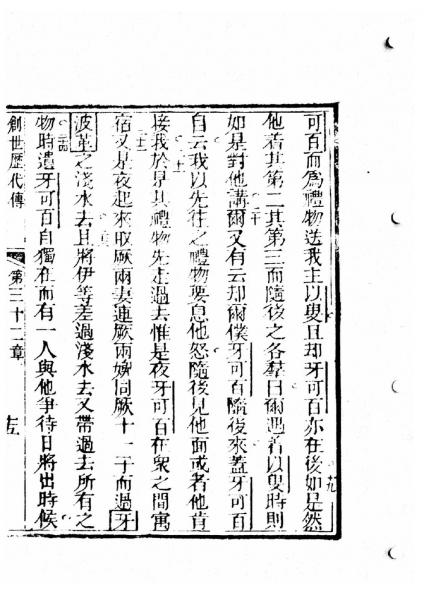 可百而爲禮物送我主以叟且却牙可百亦在後如是然
十九
他着其第二其第三而隨後之各羣曰爾遇着以叟時則
如是對他講爾又有云却爾僕牙可百隨後來蓋牙可百
二十
自云我以先往之禮物要息他怒隨後見他面或者他肯
二十一
接我於是其禮物先走過去惟是夜牙可百在衆之間寓
二十二
宿又是夜起來取厥兩妻連厥兩婢同厥十一子而過牙
波革之淺水去且將伊等差過淺水去又帶過去所有之
二十三
二十四
物時遺牙可百自獨在而有一人與他爭待日將出時候
創世歷代傳
第三十二章
左